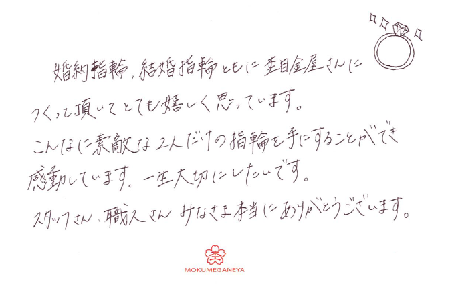 婚約指輪、結婚指輪ともに杢目金屋さんに
つくって頂いてとても嬉しく思っています。
こんなに素敵な2人だけの指輪を手にすることができ
感動しています。一生大切にしたいです。
スタッフさん、職人さん みなさま本当にありがとうございます。
MOKUMEGANEYA